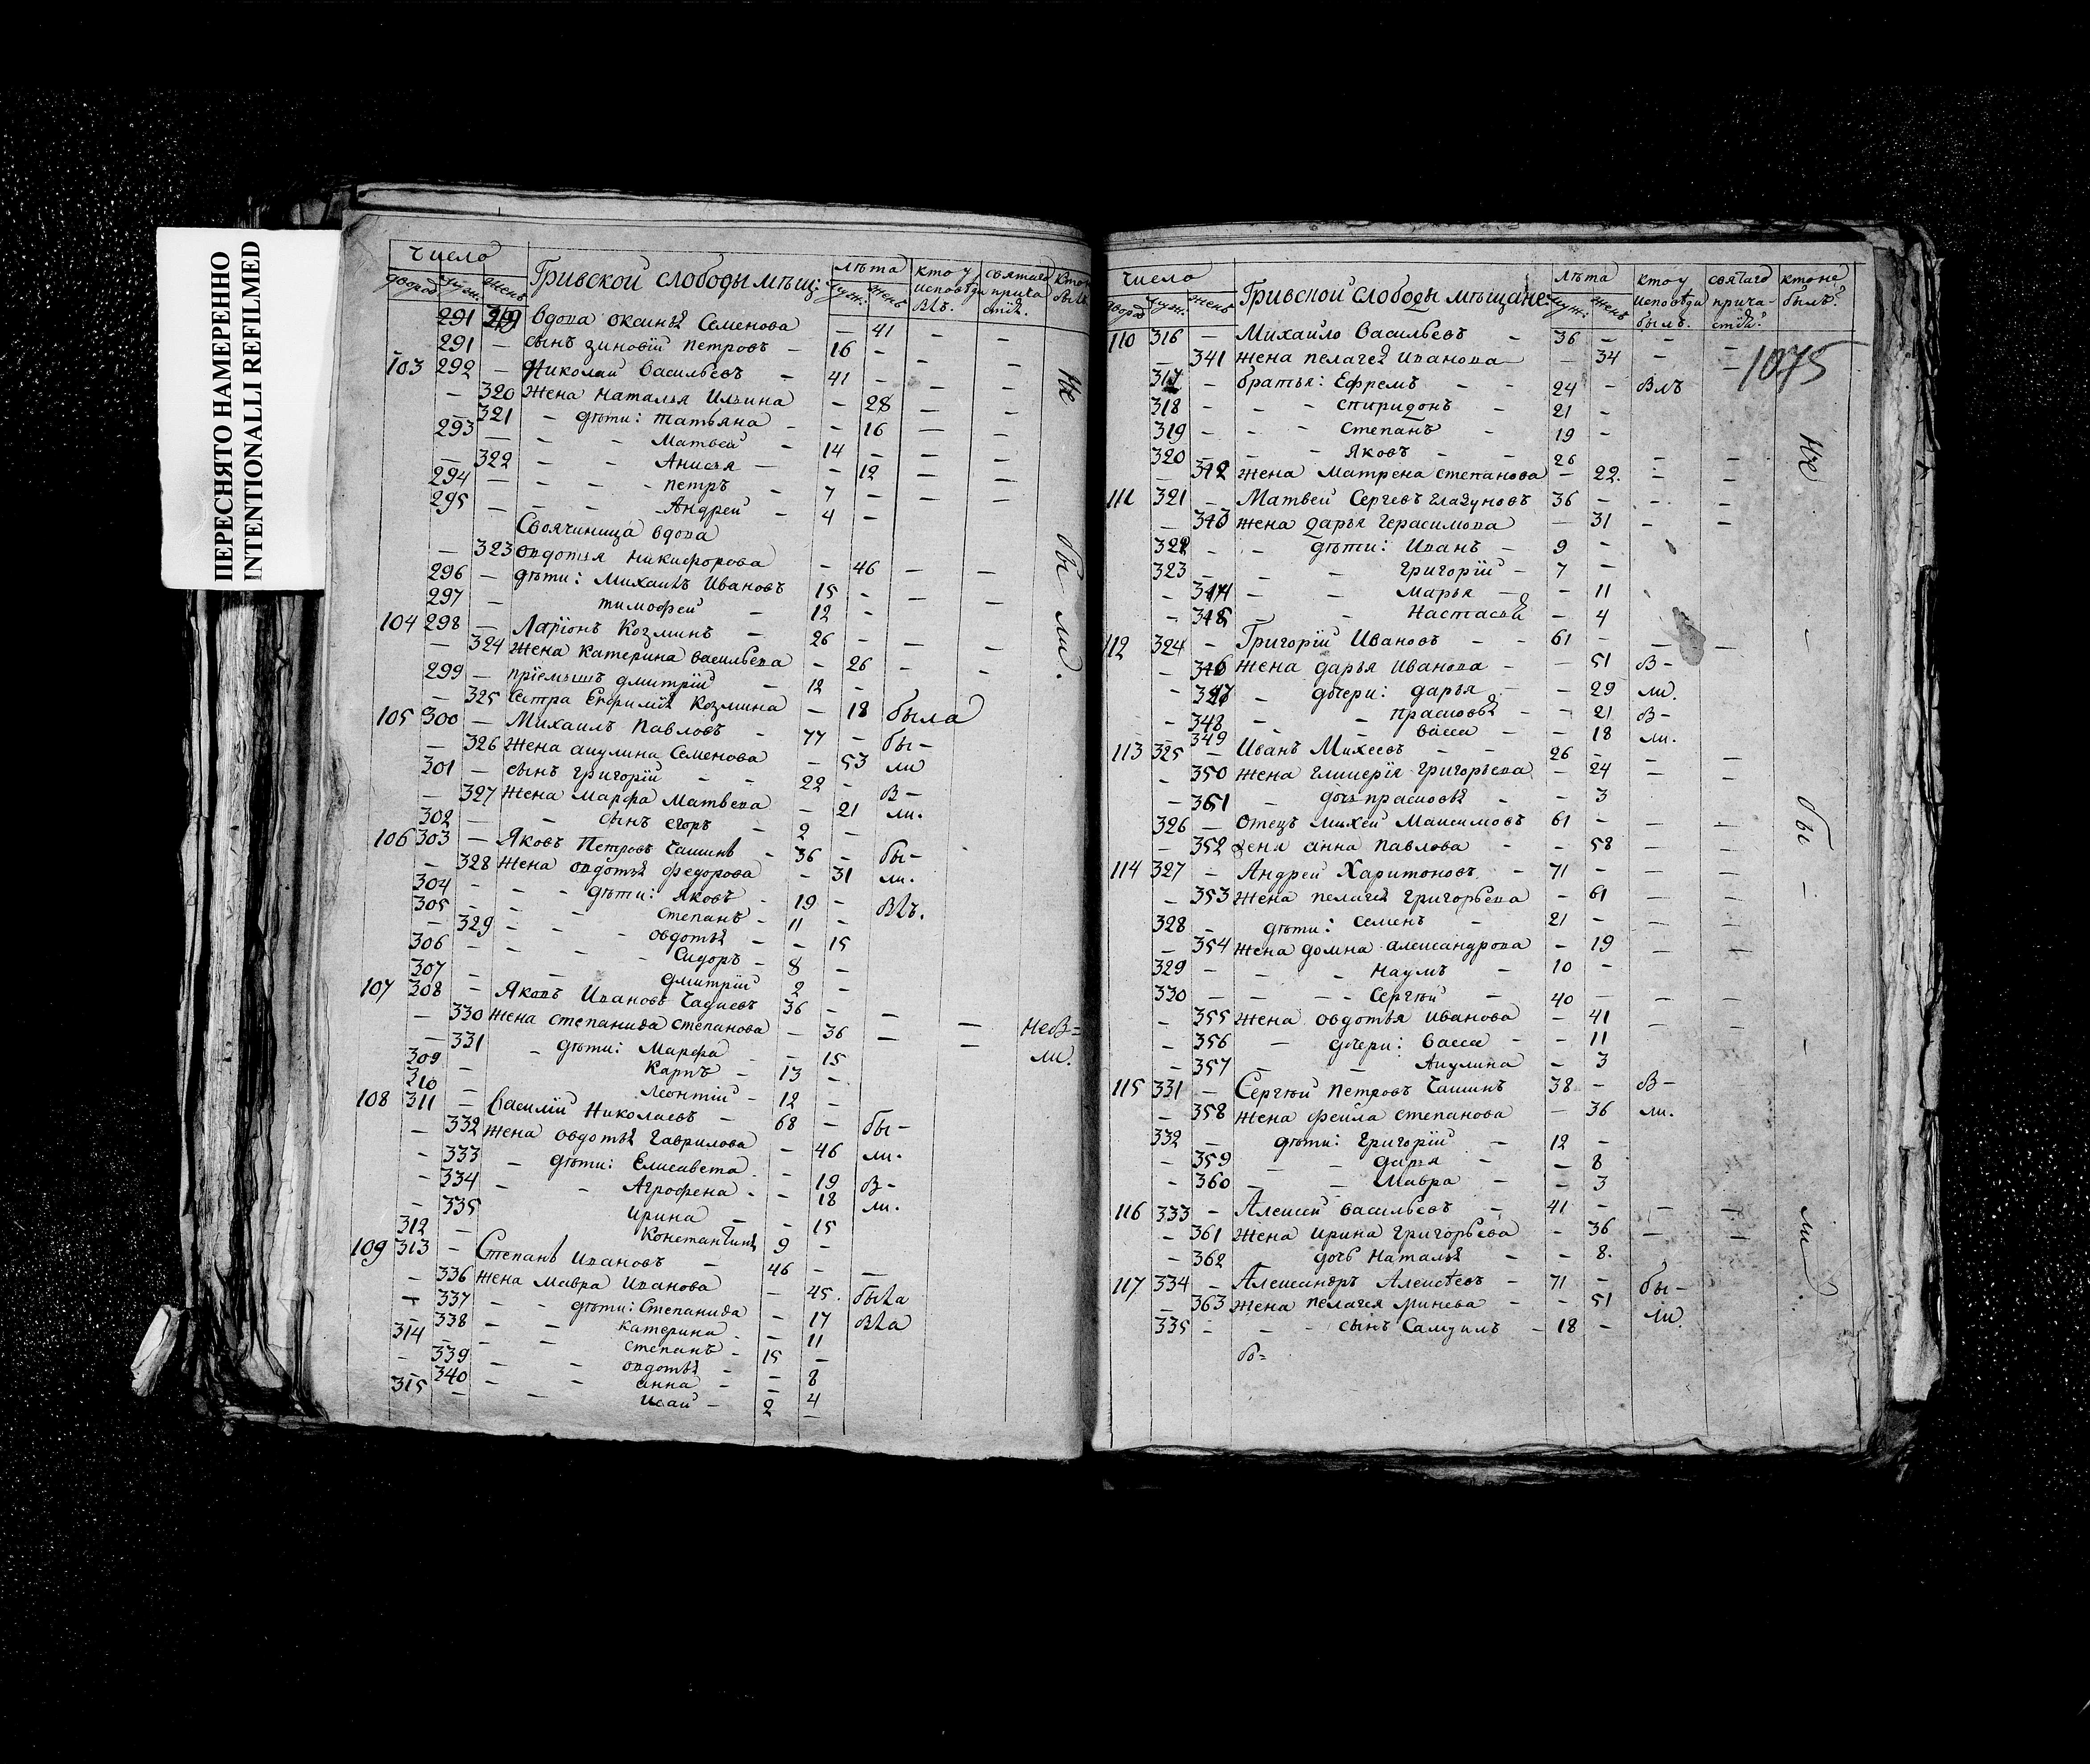 ПЕРЕСНЯТО НАМЕРЕННО
INTENTIONALLI REFILMED
Число Лѣта кто у святаго
дворов муж. женъ Гривской слободы мѣщ: муж. женъ исповѣди прича
291 319 вдова оксинья Семенова — 41 — —
291 — сынъ зиновій петровъ — 16 —
103 292 — Николай васильевъ — 41 — — Не
— 320 жена наталья Ильина — 28 — —
— 321 — дѣти: татьяна — — 16 — —
293 — — — Матвей — 14 —
— 322 — — Анисья — — 12 — —
294 — — — петръ — 7 — — —
295 — — — Андрей — 4 —
Своячиница вдова
— 323 овдотья никифорова — 46 — —
296 — дѣти: Михаилъ Ивановъ 15 — бы
297 — тимофей — 12 —
104 298 — Ларіонъ Козминъ — 26 — — ли.
— 324 жена катерина васильева — 26 — —
299 — пріемышъ дмитрій — 12 —
— 325 сестра Ефимія Козмина — 18 была
105 300 — Михаилъ Павловъ — 77 — бы-
— 326 жена акулина Семенова — 53 ли
301 — сынъ григорій — — 22 — в-
— 327 жена Марфа Матвева — 21 ли.
302 — — сынъ егоръ — 2 —
106 303 — Яковъ Петровъ Чашинъ — 36 — бы-
— 328 жена овдотья федорова — 31 ли.
304 — — — дѣти: Яковъ — 19 — вlъ.
305 — — — Степанъ — 11 —
— 329 — — овдотья — — 15
306 — — — — Сидоръ — 8 —
307 — — — дмитрій 2 —
107 308 — Яковъ Ивановъ 36 —
— 330 жена степанида степанова — 36 — — Не в=
— 331 — дѣти: Марфа — — 15 ли.
309 — Карпъ — 13 —
310 — Леонтій — 12 —
108 311 — Василій Николаевъ — 68 — бы-
— 332 жена овдотья гаврилова — 46 ли.
— 333 — дѣти: Елисавета — — 19 в-
— 334 — — Агрофена — — 18 ли.
— 335 ирина — — 15
312 — Константинъ 9 —
109 313 — Степанъ Ивановъ — 46 — —
— 336 жена мавра Иванова — 45. была
— 337 — — дѣти: Степанида — 17 вlа
— 338 — — катерина — — 11
314 — — Степанъ — 15 —
— 339 — — овдотья — — 8
— 340 — — анна — — 4
315 — — исай — 2 —
Число Лѣта кто у святаго кто не
дворов муж. женъ Гривской слободы мѣщане муж: женъ исповѣди прича- былъ?
былъ.
110 316 — Михайло Васильевъ — 36 — — —
— 341 жена пелагея Иванова — — 34 — — 1075
317 — братья: Ефремъ — — 24 — влъ
318 — — — спиридонъ — 21 —
319 — — — степанъ — 19 — Не
320 — — — Яковъ — — 26 — — —
— 342 жена Матрена степанова — 22. — —
111 321 — Матвей Сергевъ глазуновъ 36 — — —
— 343 жена дарья герасимова — 31 — —
322 — — дѣти: Иванъ — 9 —
323 — — — григорій — 7 —
— 344 — — Марья — — 11
— 345 — — Настасья — 4
112 324 — Григорій Ивановъ — — 61 — — — —
— 346 жена дарья Иванова — — 51 в-
— 347 — дочери: дарья — — 29 ли.
— 348 — — прасковья — — 21 в-
— 349 васса — — 18 ли.
113 325 — Иванъ Михеевъ — — 26 — — —
— 350 жена григорьева — 24 — —
— 351 — дочь прасковья — — 3
326 — Отецъ михей Максимовъ 61 — — — бы
— 352 жена анна павлова — — 58 — —
114 327 — Андрей Харитоновъ — 71 — — —
— 353 жена пелагея григорьева — 61 — — —
328 — дѣти: Семенъ — 21 — —
— 354 жена домна александрова — 19 — —
329 — — — наумъ — 10 —
330 — — — — Сергѣй — 40 — — —
— 355 жена овдотья иванова — 41 — —
— 356 — дочери: васса — — 11 —
— 357 — — Акулина — 3
115 331 — Сергѣй Петровъ Чашинъ 38 — в-
— 358 жена фекла степанова — 36 ли.
332 — дѣти: григорій — 12 —
— 359 — — дарья — — 8
— 360 — — Мавра — — 3
116 333 — Алексей васильевъ — 41 — — — ли.
— 361 жена ирина григорьева — 36 — —
— 362 дочь наталья — — 8.
117 334 — Александръ Алексеевъ — 71 — бы-
— 363 жена пелагея минеева — — 51 ли.
335 — — — сынъ Самуилъ — 18 —